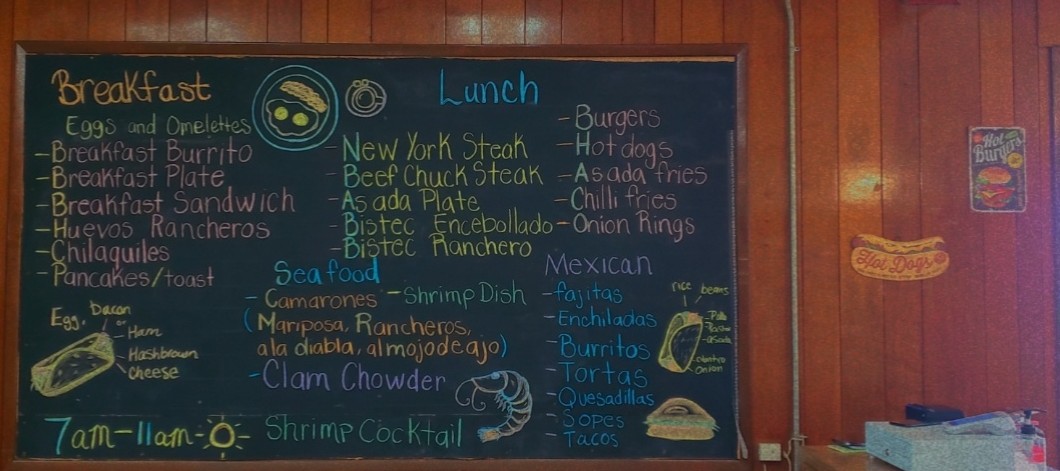 Breakfast
Eggs and Omelettes
- Breakfast Burrito
- Breakfast Plate
- Breakfast Sandwich
- Huevos Rancheros
- Chilaquiles
- Pancakes/toast
Egg,
Bacon
or
- Ham
- Hashbrown
- Cheese
7am-11am-
Lunch
- New York Steak
- Beef Chuck Steak
- Asada Plate
- Bistec Encebollado
- Bistec Ranchero
- Burgers
- Hotdogs
- Asada fries
- Chilli fries
- Onion Rings
Seafood
- Camarones - Shrimp Dish
(Mariposa, Rancheros,
ala diabla, al mojo de ajo)
- Clam Chowder
Shrimp Cocktail
Mexican
- fajitas
- Enchiladas
- Burritos
- Tortas
- Quesadillas
- Sopes
- Tacos
rice beans
- asada
- cilantro
Onion
Hot
Burgers
Hot Dogs